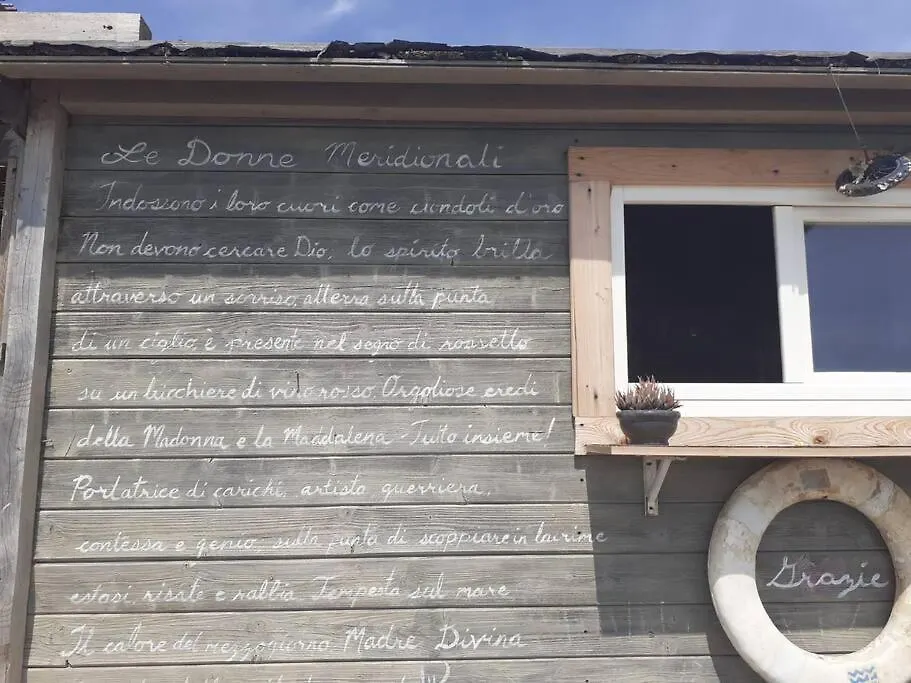 Le Donne Meridionali
Indossano i loro cuori come ciondoli d'oro
Non devono cercare Dio, lo spirito brilla
attraverso un sorriso, atterra sulla punta
di un ciglio, è presente nel segno di rossetto
su un bicchiere di vino rosso. Orgogliose eredi
della Madonna e la Maddalena - Tutto insieme!
Portatrice di carichi, artista guerriera,
contessa e genio, sulla punta di scoppiare in lacrime
estasi, risate e rabbia. Tempesta sul mare
Il calore del mezzogiorno. Madre Divina
Grazie